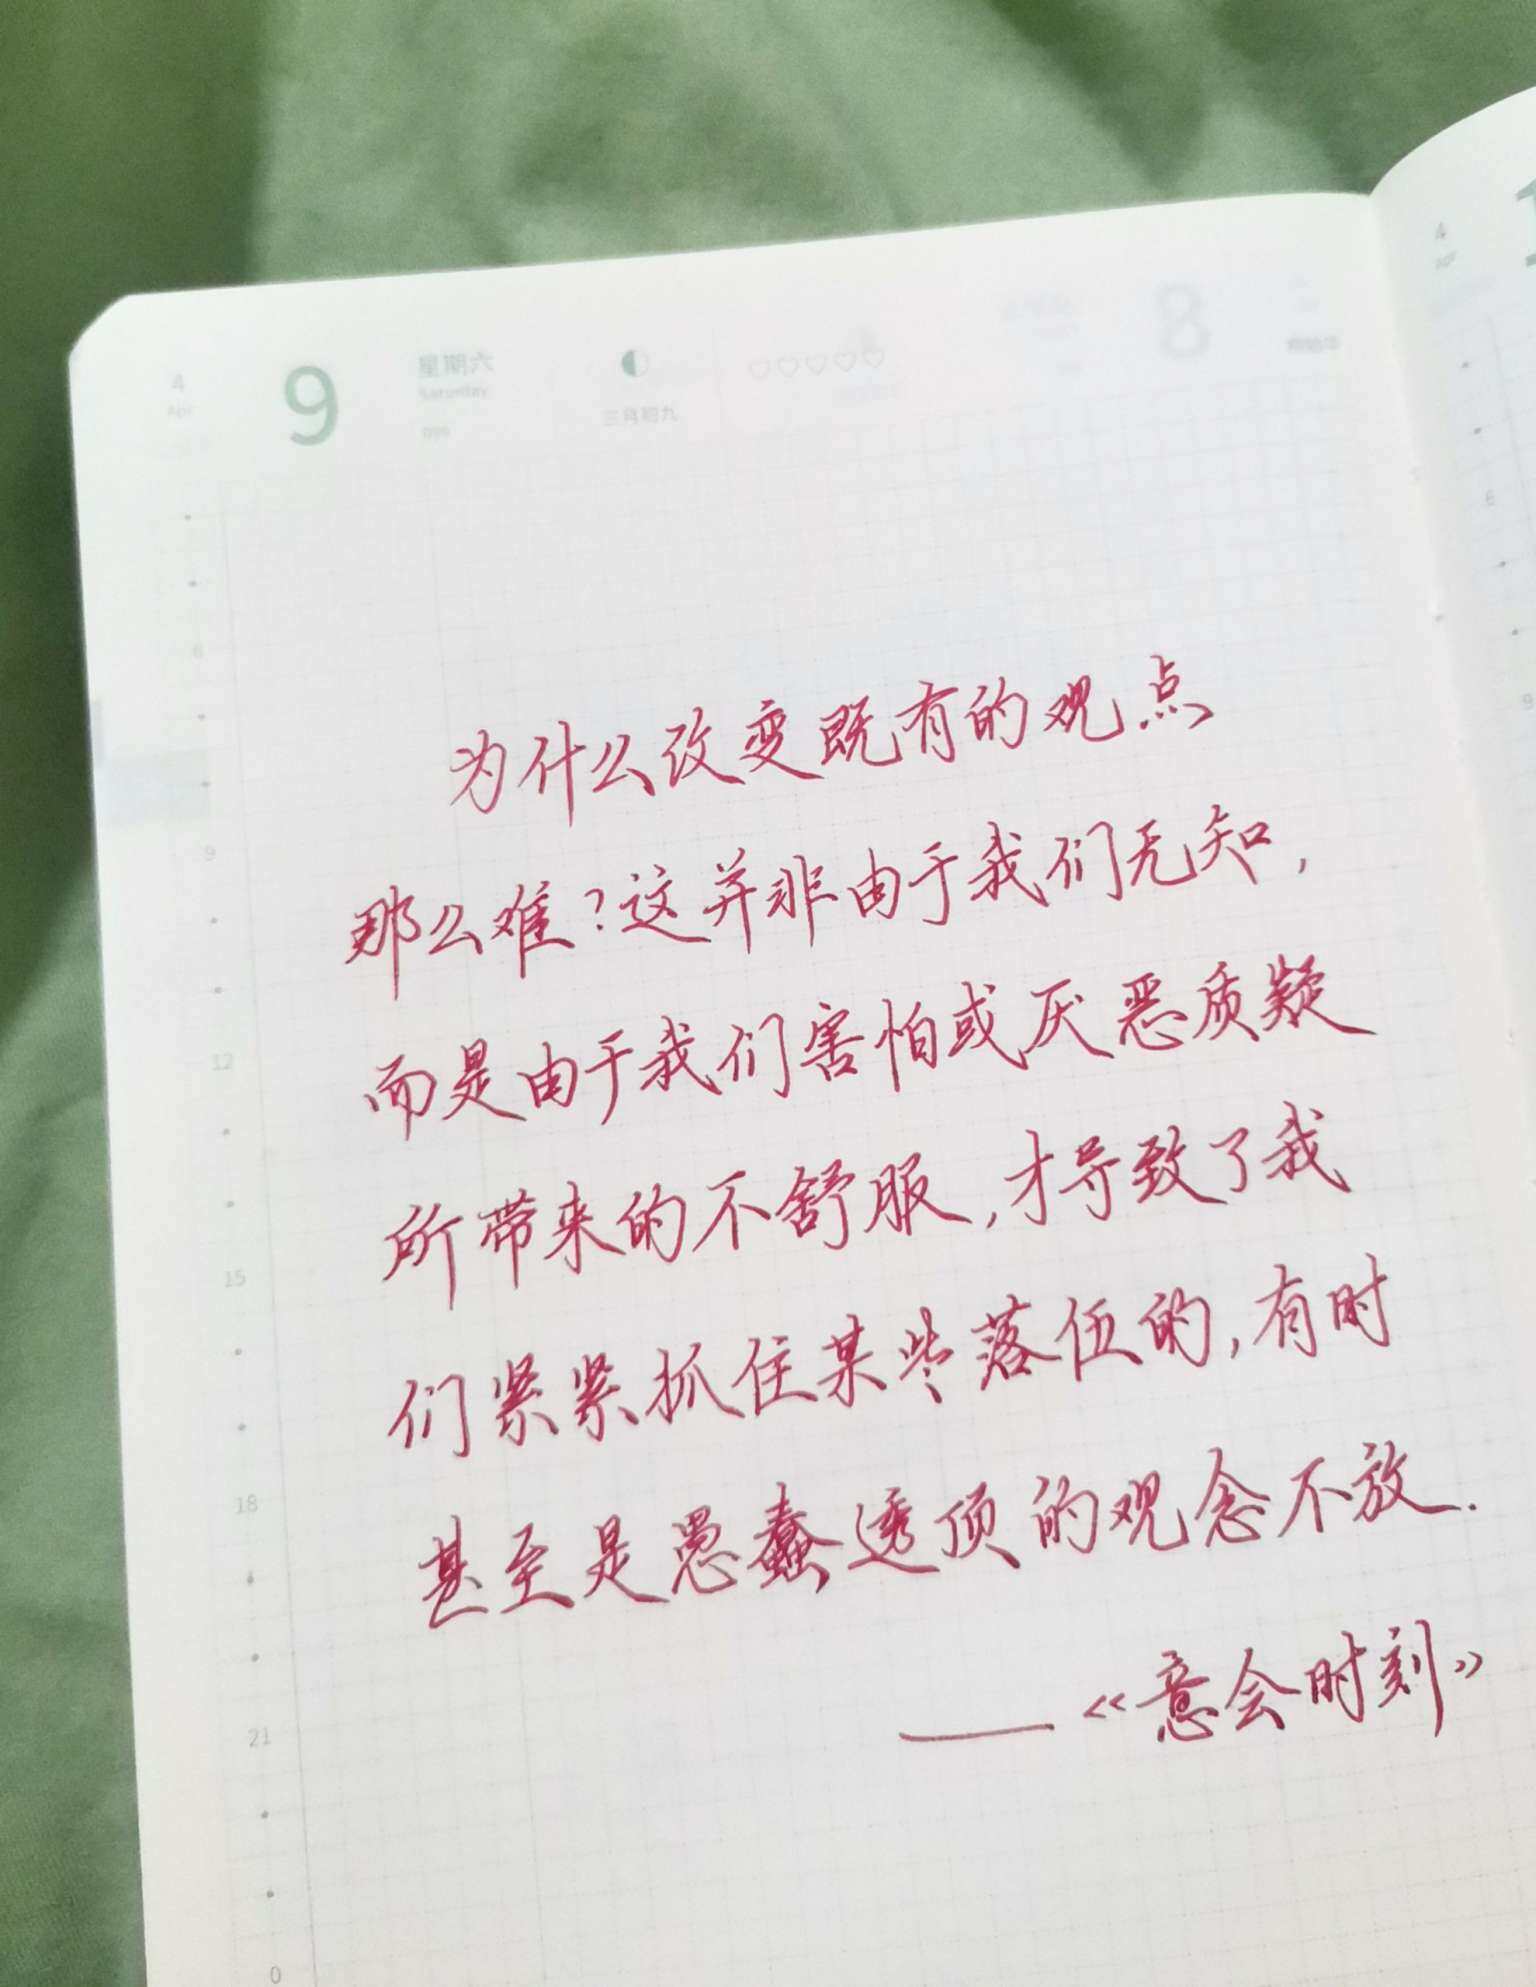 4
Apr
9
星期六
Saturday
三月初九
8
4
Apr
6
9
6
9
12
15
18
21
0
为什么改变既有的观点
那么难?这并非由于我们无知,
而是由于我们害怕或厌恶质疑
所带来的不舒服,才导致了我
们紧紧抓住某些落伍的,有时
甚至是愚蠢透顶的观念不放.
——《意会时刻》